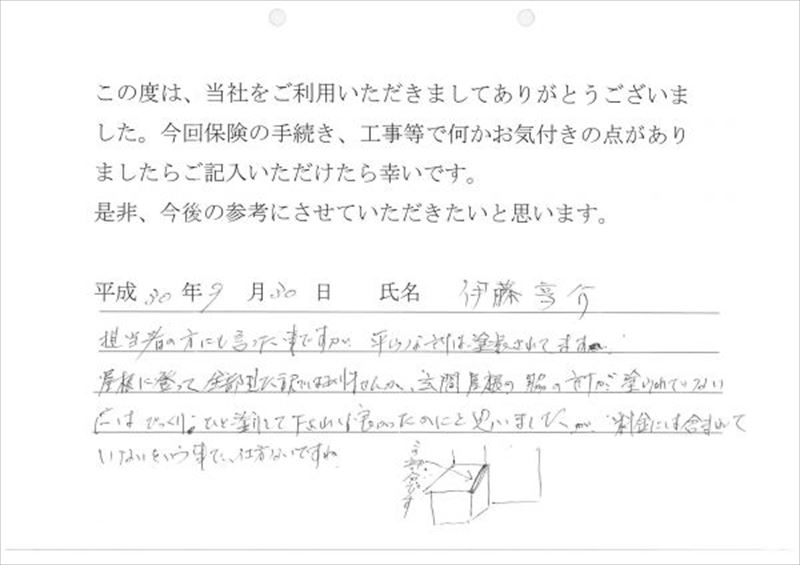 この度は、当社をご利用いただきましてありがとうございま
した。今回保険の手続き、工事等で何かお気付きの点があり
ましたらご記入いただけたら幸いです。
是非、今後の参考にさせていただきたいと思います。
平成 30 年 9 月 30 日 氏名 伊藤 享介
担当者の方にも言った事ですが、平らな所は塗装されてますが、
屋根に登って全部見た訳ではありませんが、玄関屋根の脇の所が塗られていない
点はびっくり。ひと塗りして下されば良かったのにと思いましたが、料金には含まれて
いないという事で、仕方ないですね